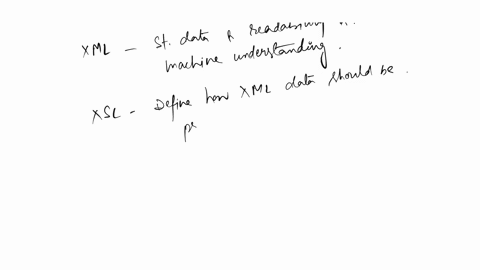 XML - St. data &
machine understanding.
XSL - Define how XML data should be.
pr